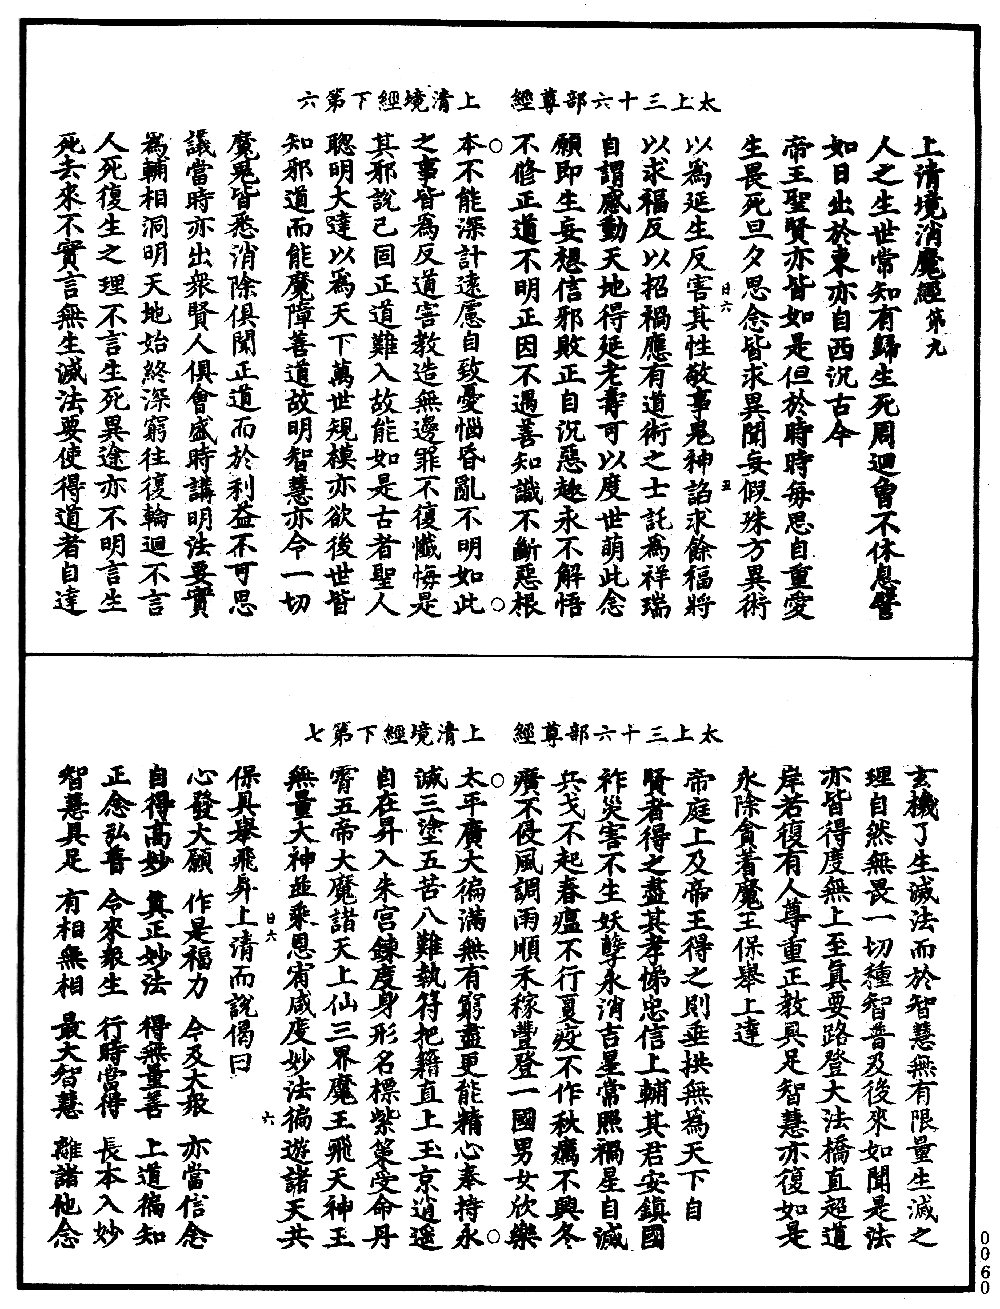 太上三十六部尊經　上清境經下第六
上清境消魔經第九
人之生世常知有歸生死周迴會不休息譬
如日出於東亦自西沉古今
帝王聖賢亦皆如是但於時時每思自重愛
生畏死旦夕思念皆求異聞妄假殊方異術
日六　五
以為延生反害其性敬事鬼神諂求餘福將
以求福反以招禍應有道術之士託為祥瑞
自謂感動天地得延老壽可以度世萌此念
願即生妄想信邪敗正自沉惡趣永不解悟
不修正道不明正因不遇善知識不斷惡根
本不能深計遠慮自致憂惱昏亂不明如此
之事皆為反道害教造無邊罪不復懺悔是
其邪說已固正道難入故能如是古者聖人
聰明大達以為天下萬世規模亦欲後世皆
知邪道而能魔障善道故明智慧亦令一切
魔鬼皆悉消除俱聞正道而於利益不可思
議當時亦出衆賢人俱會盛時講明法要實
為輔相洞明天地始終深窮往復輪迴不言
人死復生之理不言生死異途亦不明言生
死去來不實言無生滅法要使得道者自達
太上三十六部尊經　上清境經下第七
玄機了生滅法而於智慧無有限量生滅之
理自然無畏一切種智普及後來如聞是法
亦皆得度無上至真要路登大法橋直超道
岸若復有人尊重正教具足智慧亦復如是
永除貪著魔王保舉上達
帝庭上及帝王得之則垂拱無為天下自
賢者得之盡其孝悌忠信上輔其君安鎮國
祚災害不生妖孽永消吉星常照禍星自滅
兵戈不起春瘟不行夏疫不作秋癘不興冬
㿈不侵風調雨順禾稼豐登一國男女欣樂
太平廣大徧滿無有窮盡更能精心奉持永
滅三塗五苦八難執符把籙直上玉京逍遥
自在昇入朱宮鍊度身形名標紫筞受命丹
霄五帝大魔諸天上仙三界魔王飛天神王
無量大神並乘恩宥咸度妙法徧遊諸天共
日六　六
保具舉飛昇上清而說偈曰
心發大願　作是福力　今及大衆　亦當信念
自得高妙　真正妙法　得無量善　上道徧知
正念弘普　令來衆生　行時當得　長本入妙
智慧具足　有相無相　最大智慧　離諸他念
0060